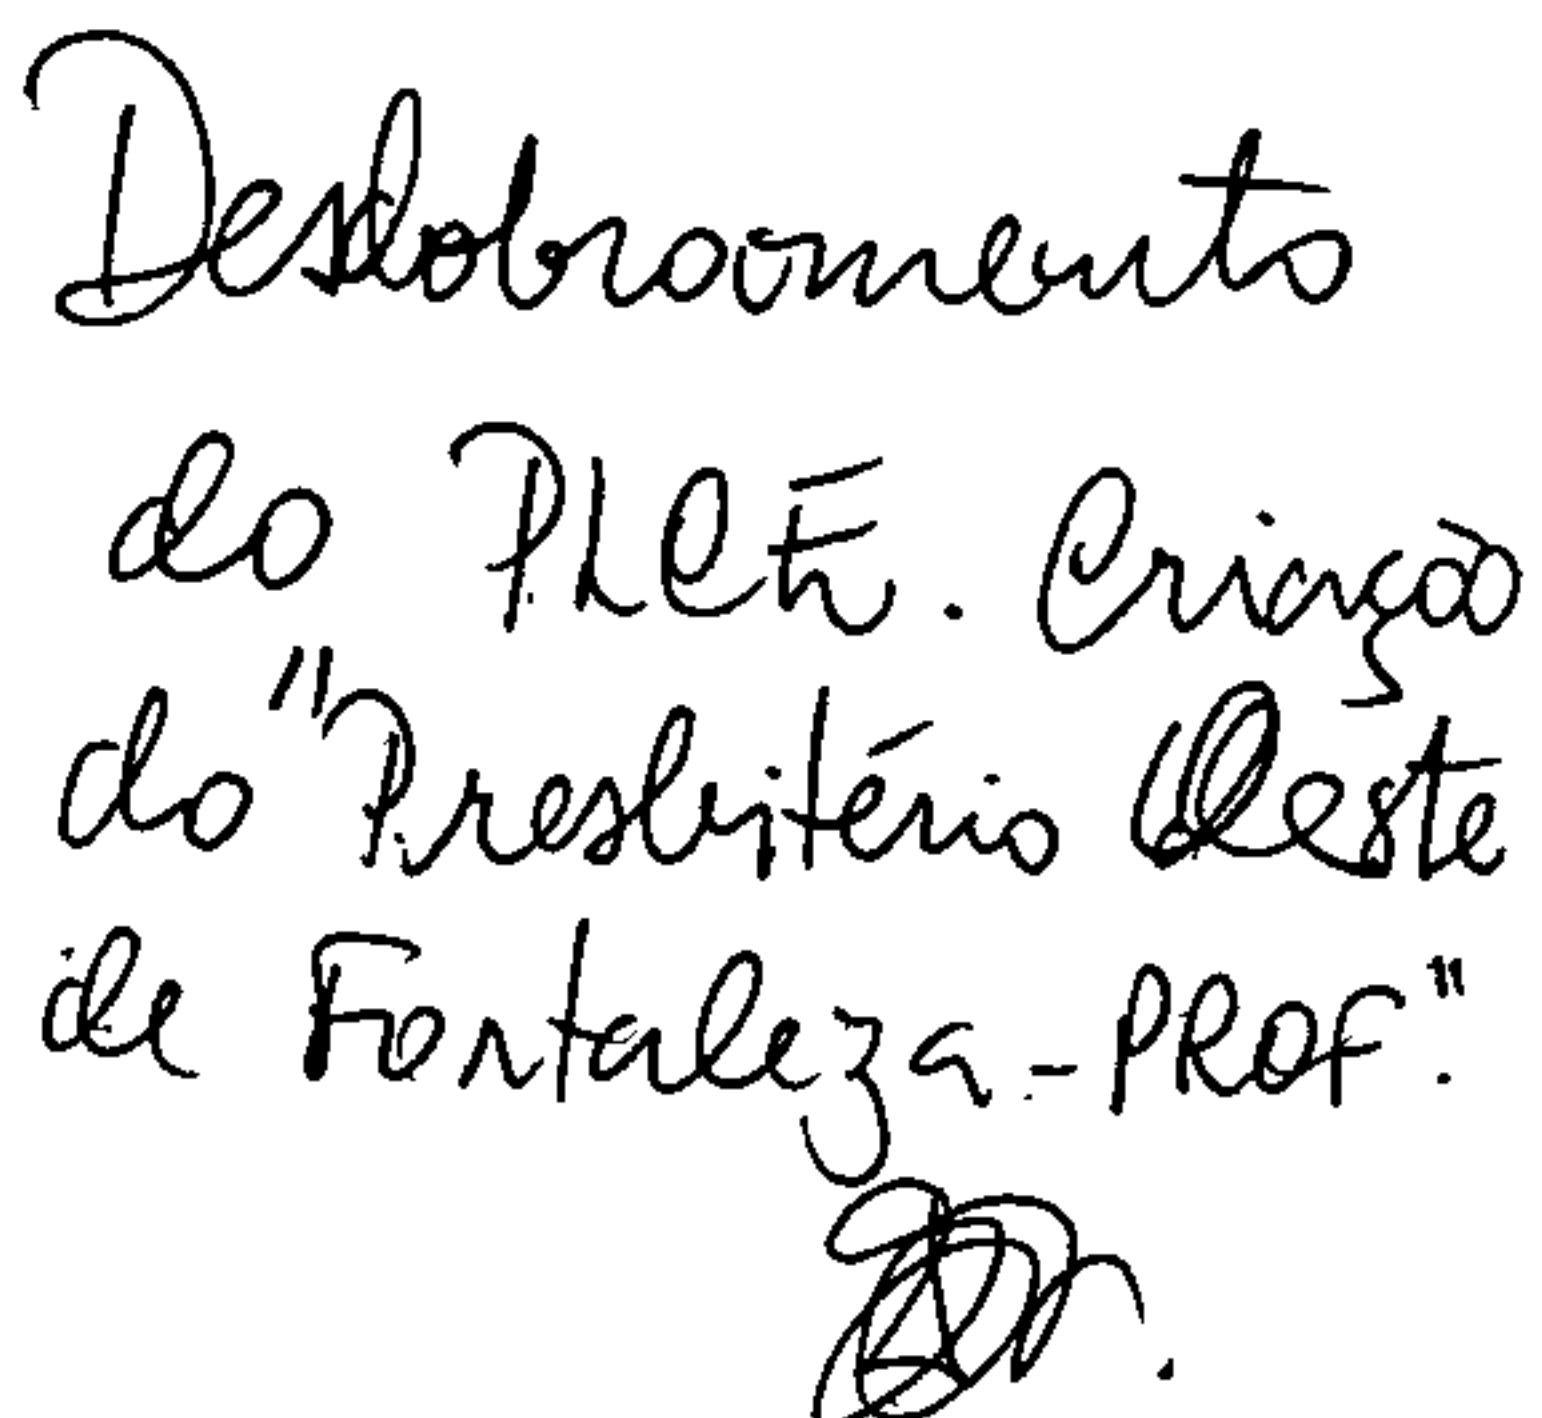 Desdobramento
do PLCE. Criação
do "Presbitério Oeste
de Fortaleza - PROF".